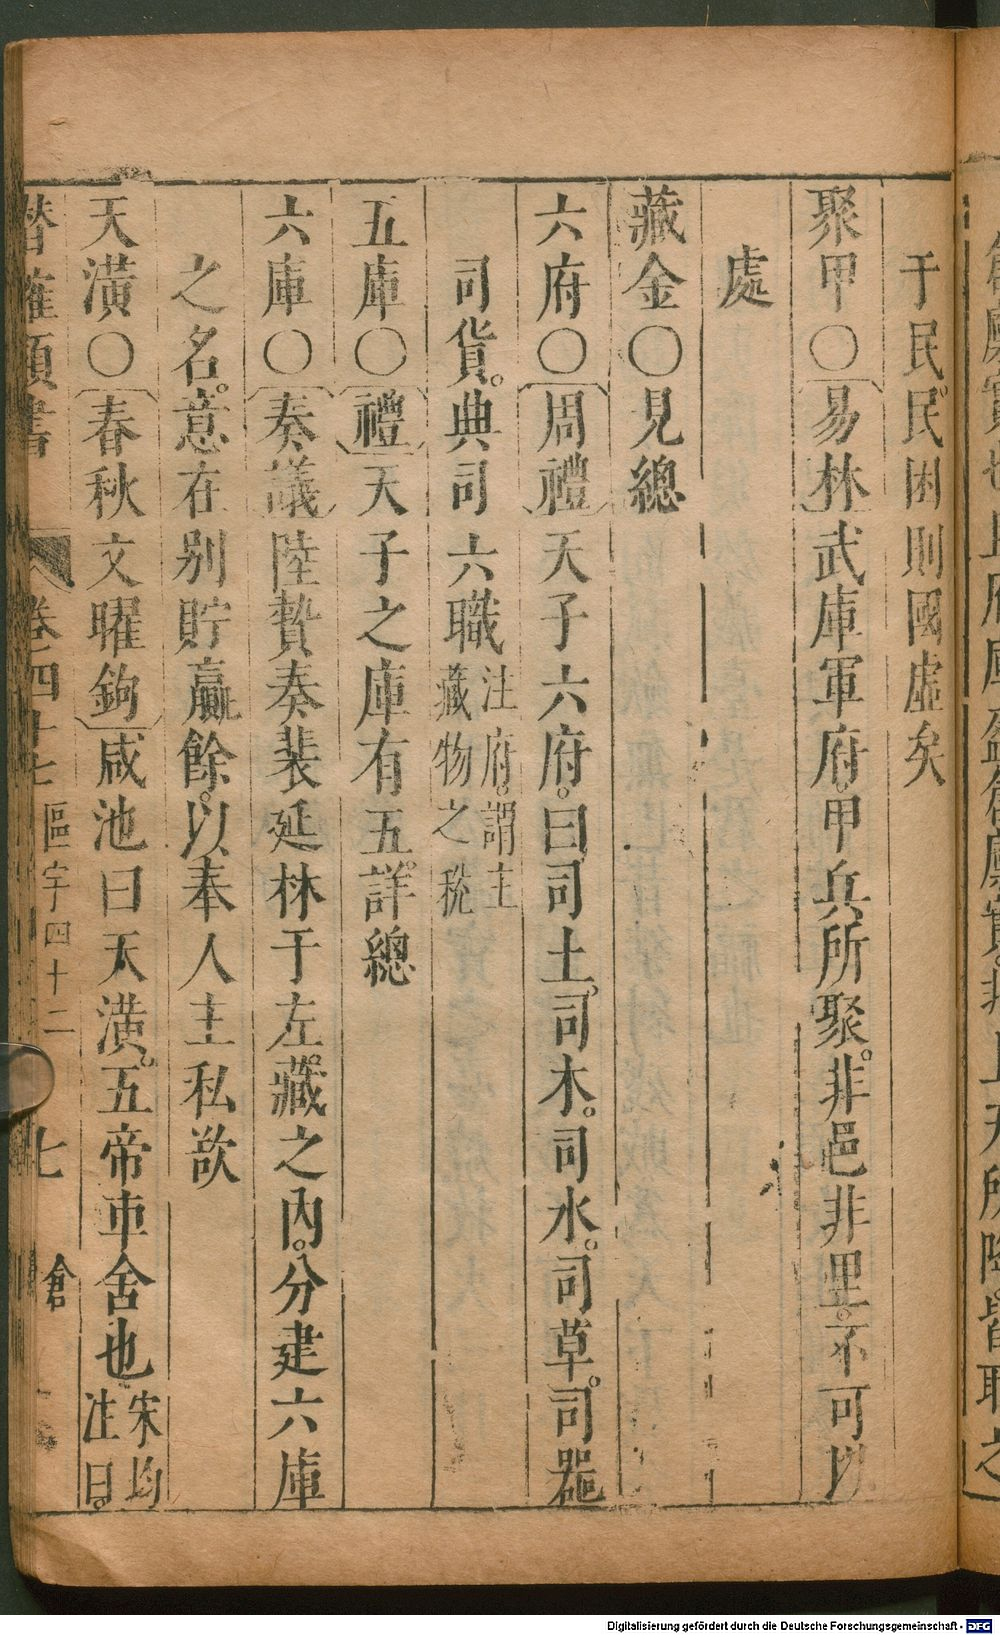 于民民困則國虛矣
聚甲○易林武庫軍府甲兵所聚非邑非里不可以
處
藏金○見總
六府○周禮天子六府曰司土司木司水司草司器
司貨典司六職注府謂主
藏物之稅
五庫○禮天子之庫有五詳總
六庫○奏議陸贄奏裴延林于左藏之內分建六庫
之名意在别貯贏餘以奉人主私欲
天潢○春秋文曜鉤咸池曰天潢五帝車舍也宋均
注曰
潛確類書 卷四十七 區宇四十二 七 倉
Digitalisierung gefördert durch die Deutsche Forschungsgemeinschaft - DFG